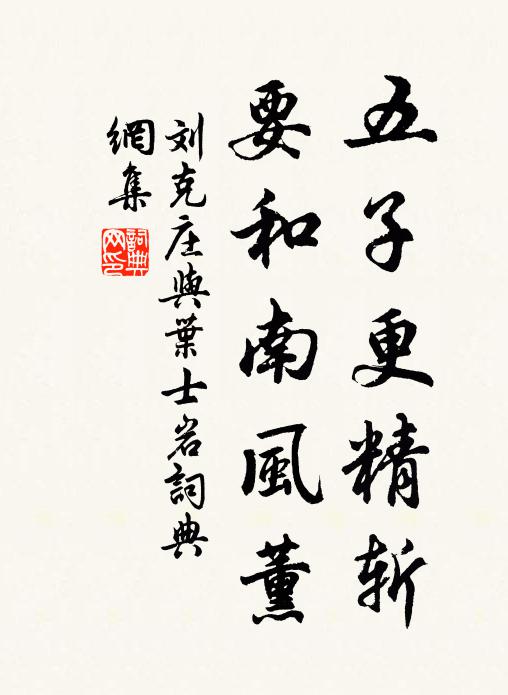 五子更精斩
要和南風薰
刘克庄與葉士岩詞典
網集
詞典
网印